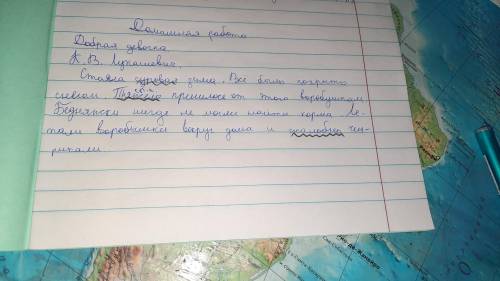 Домашняя работа
Добрая девочка.
К. В. Лукашевич.
Стояла суровая зима. Всё было покрыто
снегом. пришлось от этого воробушкам.
Бедняжки нигде не могли найти корма. Ле-
тали воробышки вокруг дома и жалобно чи-
рикали.